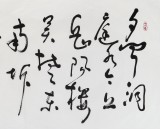 昔闻洞
庭水今上
岳阳楼
吴楚东
南坼